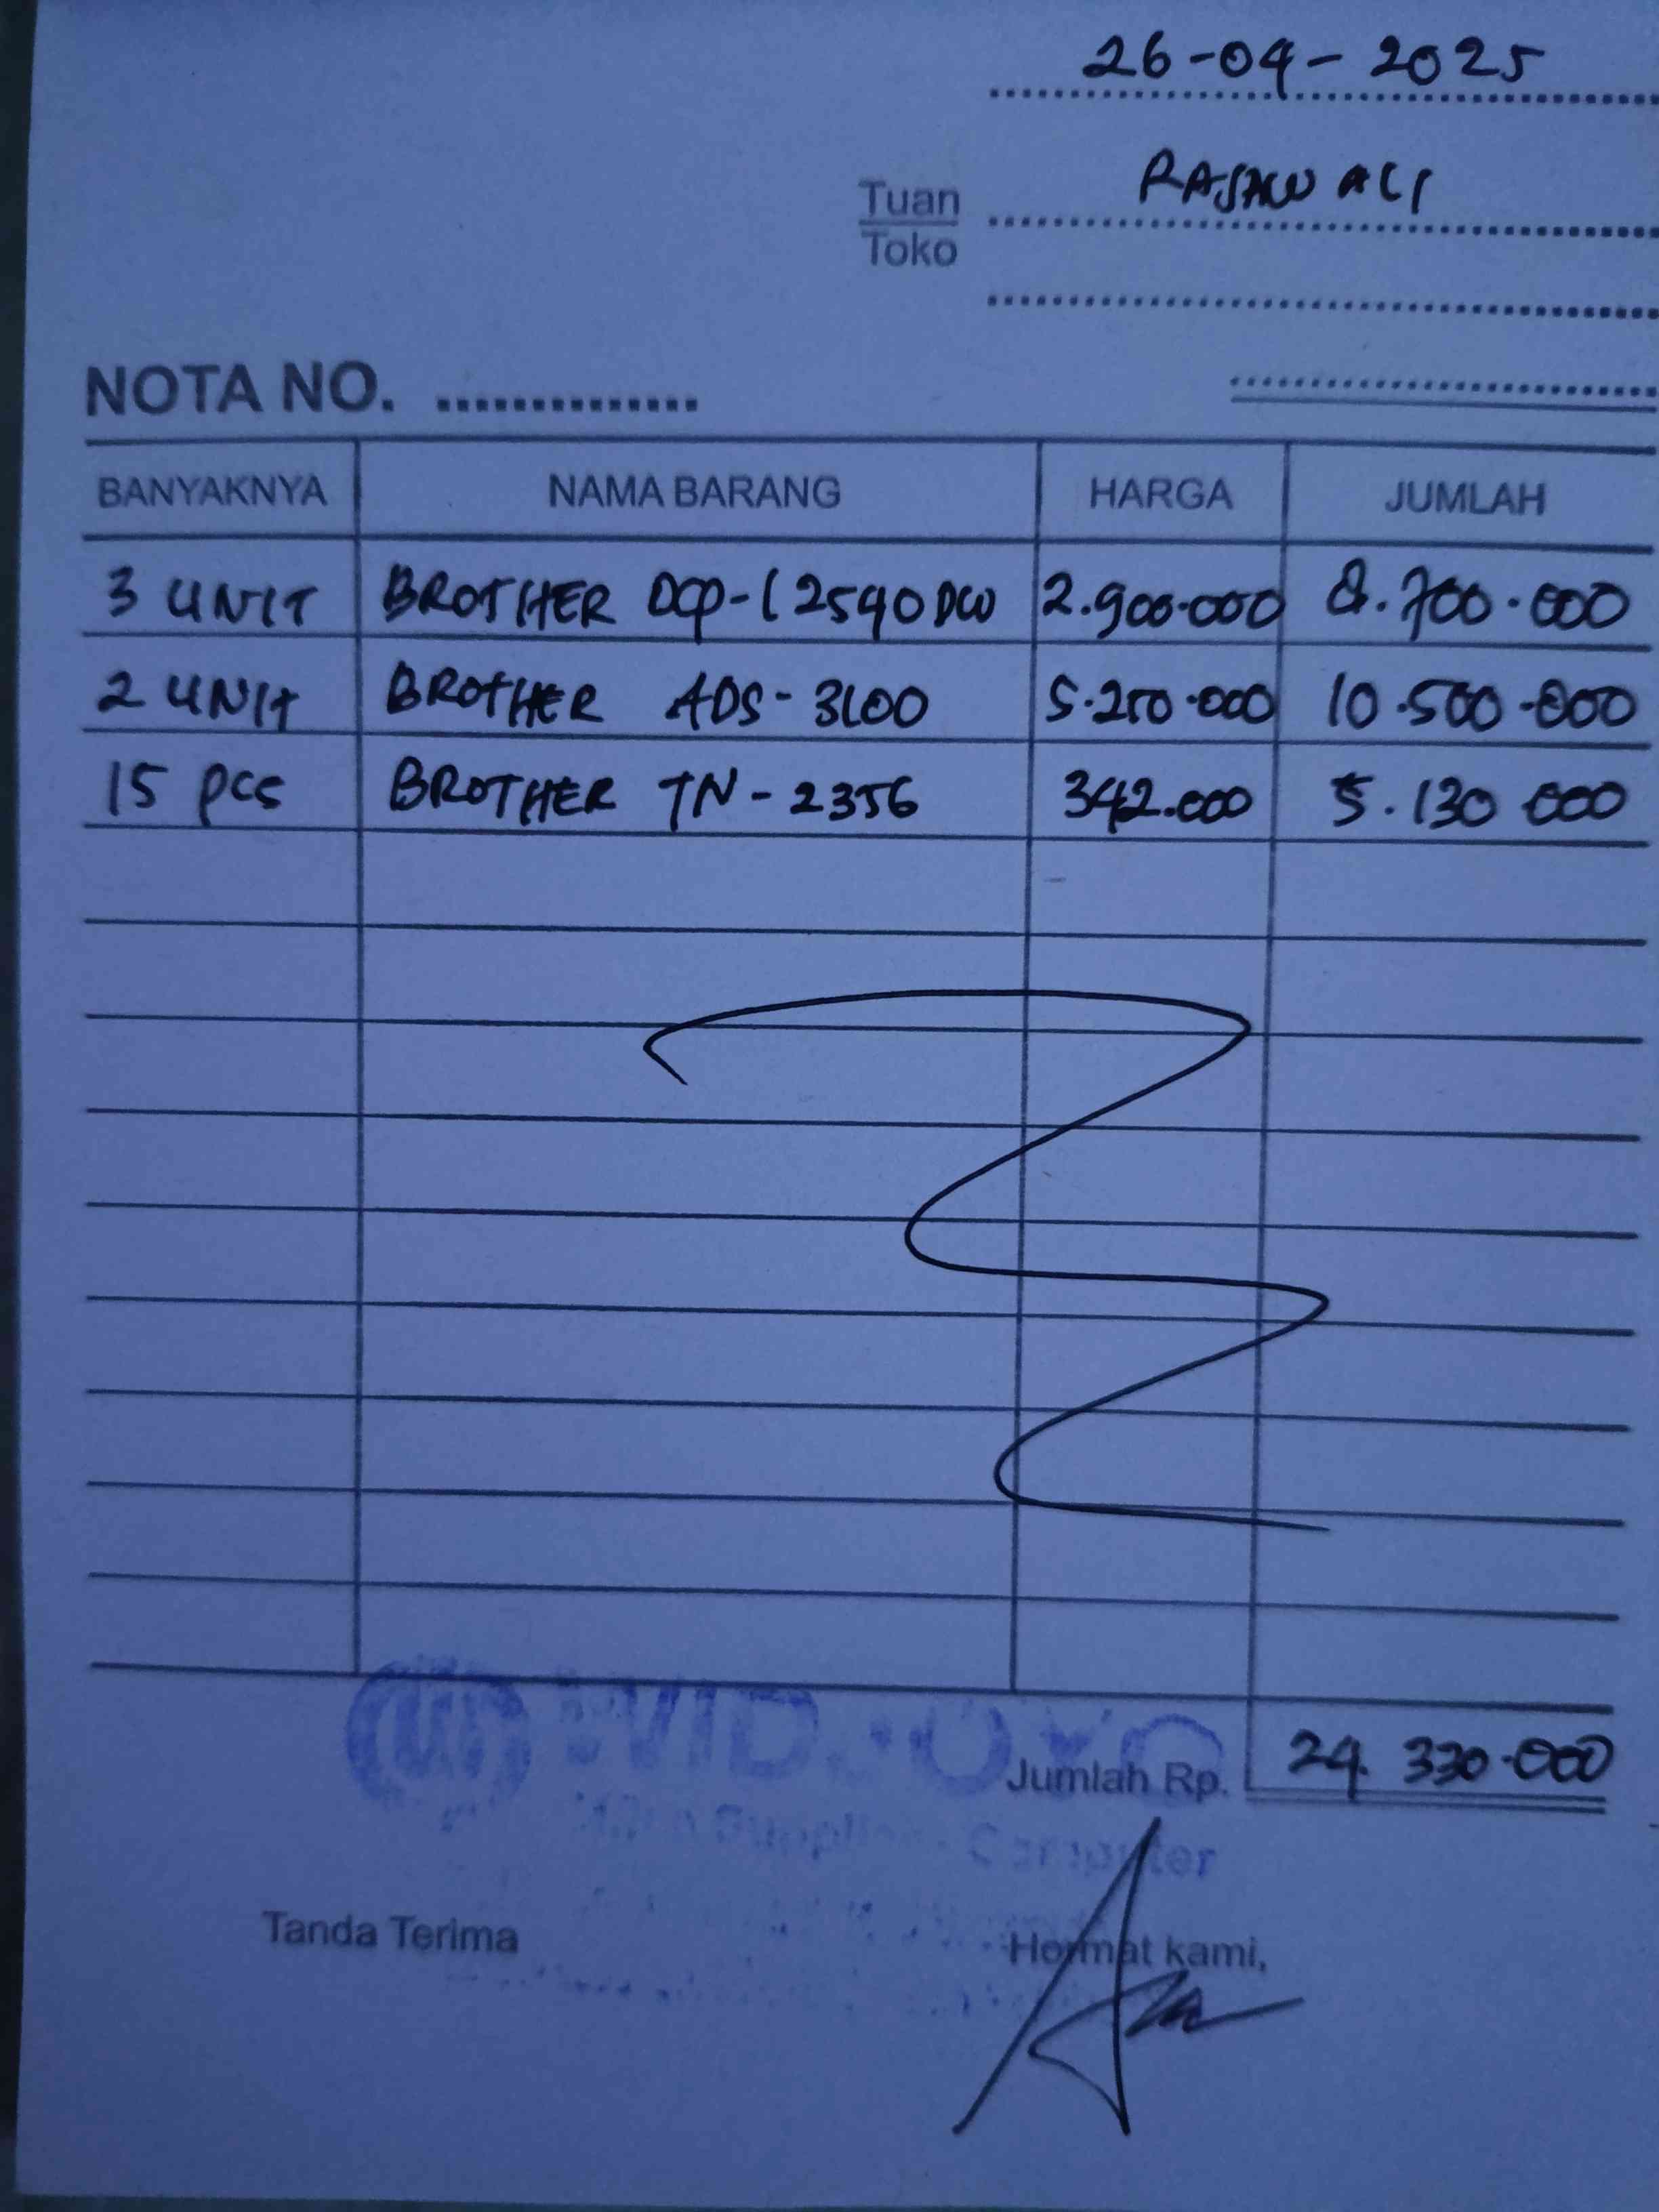 26-04-2025
Tuan
Toko
NOTA NO. ..............
BANYAKNYA NAMA BARANG HARGA JUMLAH
3 UNIT BROTHER DCP-L2540DW 2.900.000 8.700.000
2 UNIT BROTHER ADS-3100 5.250.000 10.500.000
15 pcs BROTHER TN-2356 342.000 5.130 000
Jumlah Rp. 24.330.000
Computer
Tanda Terima Hormat kami,